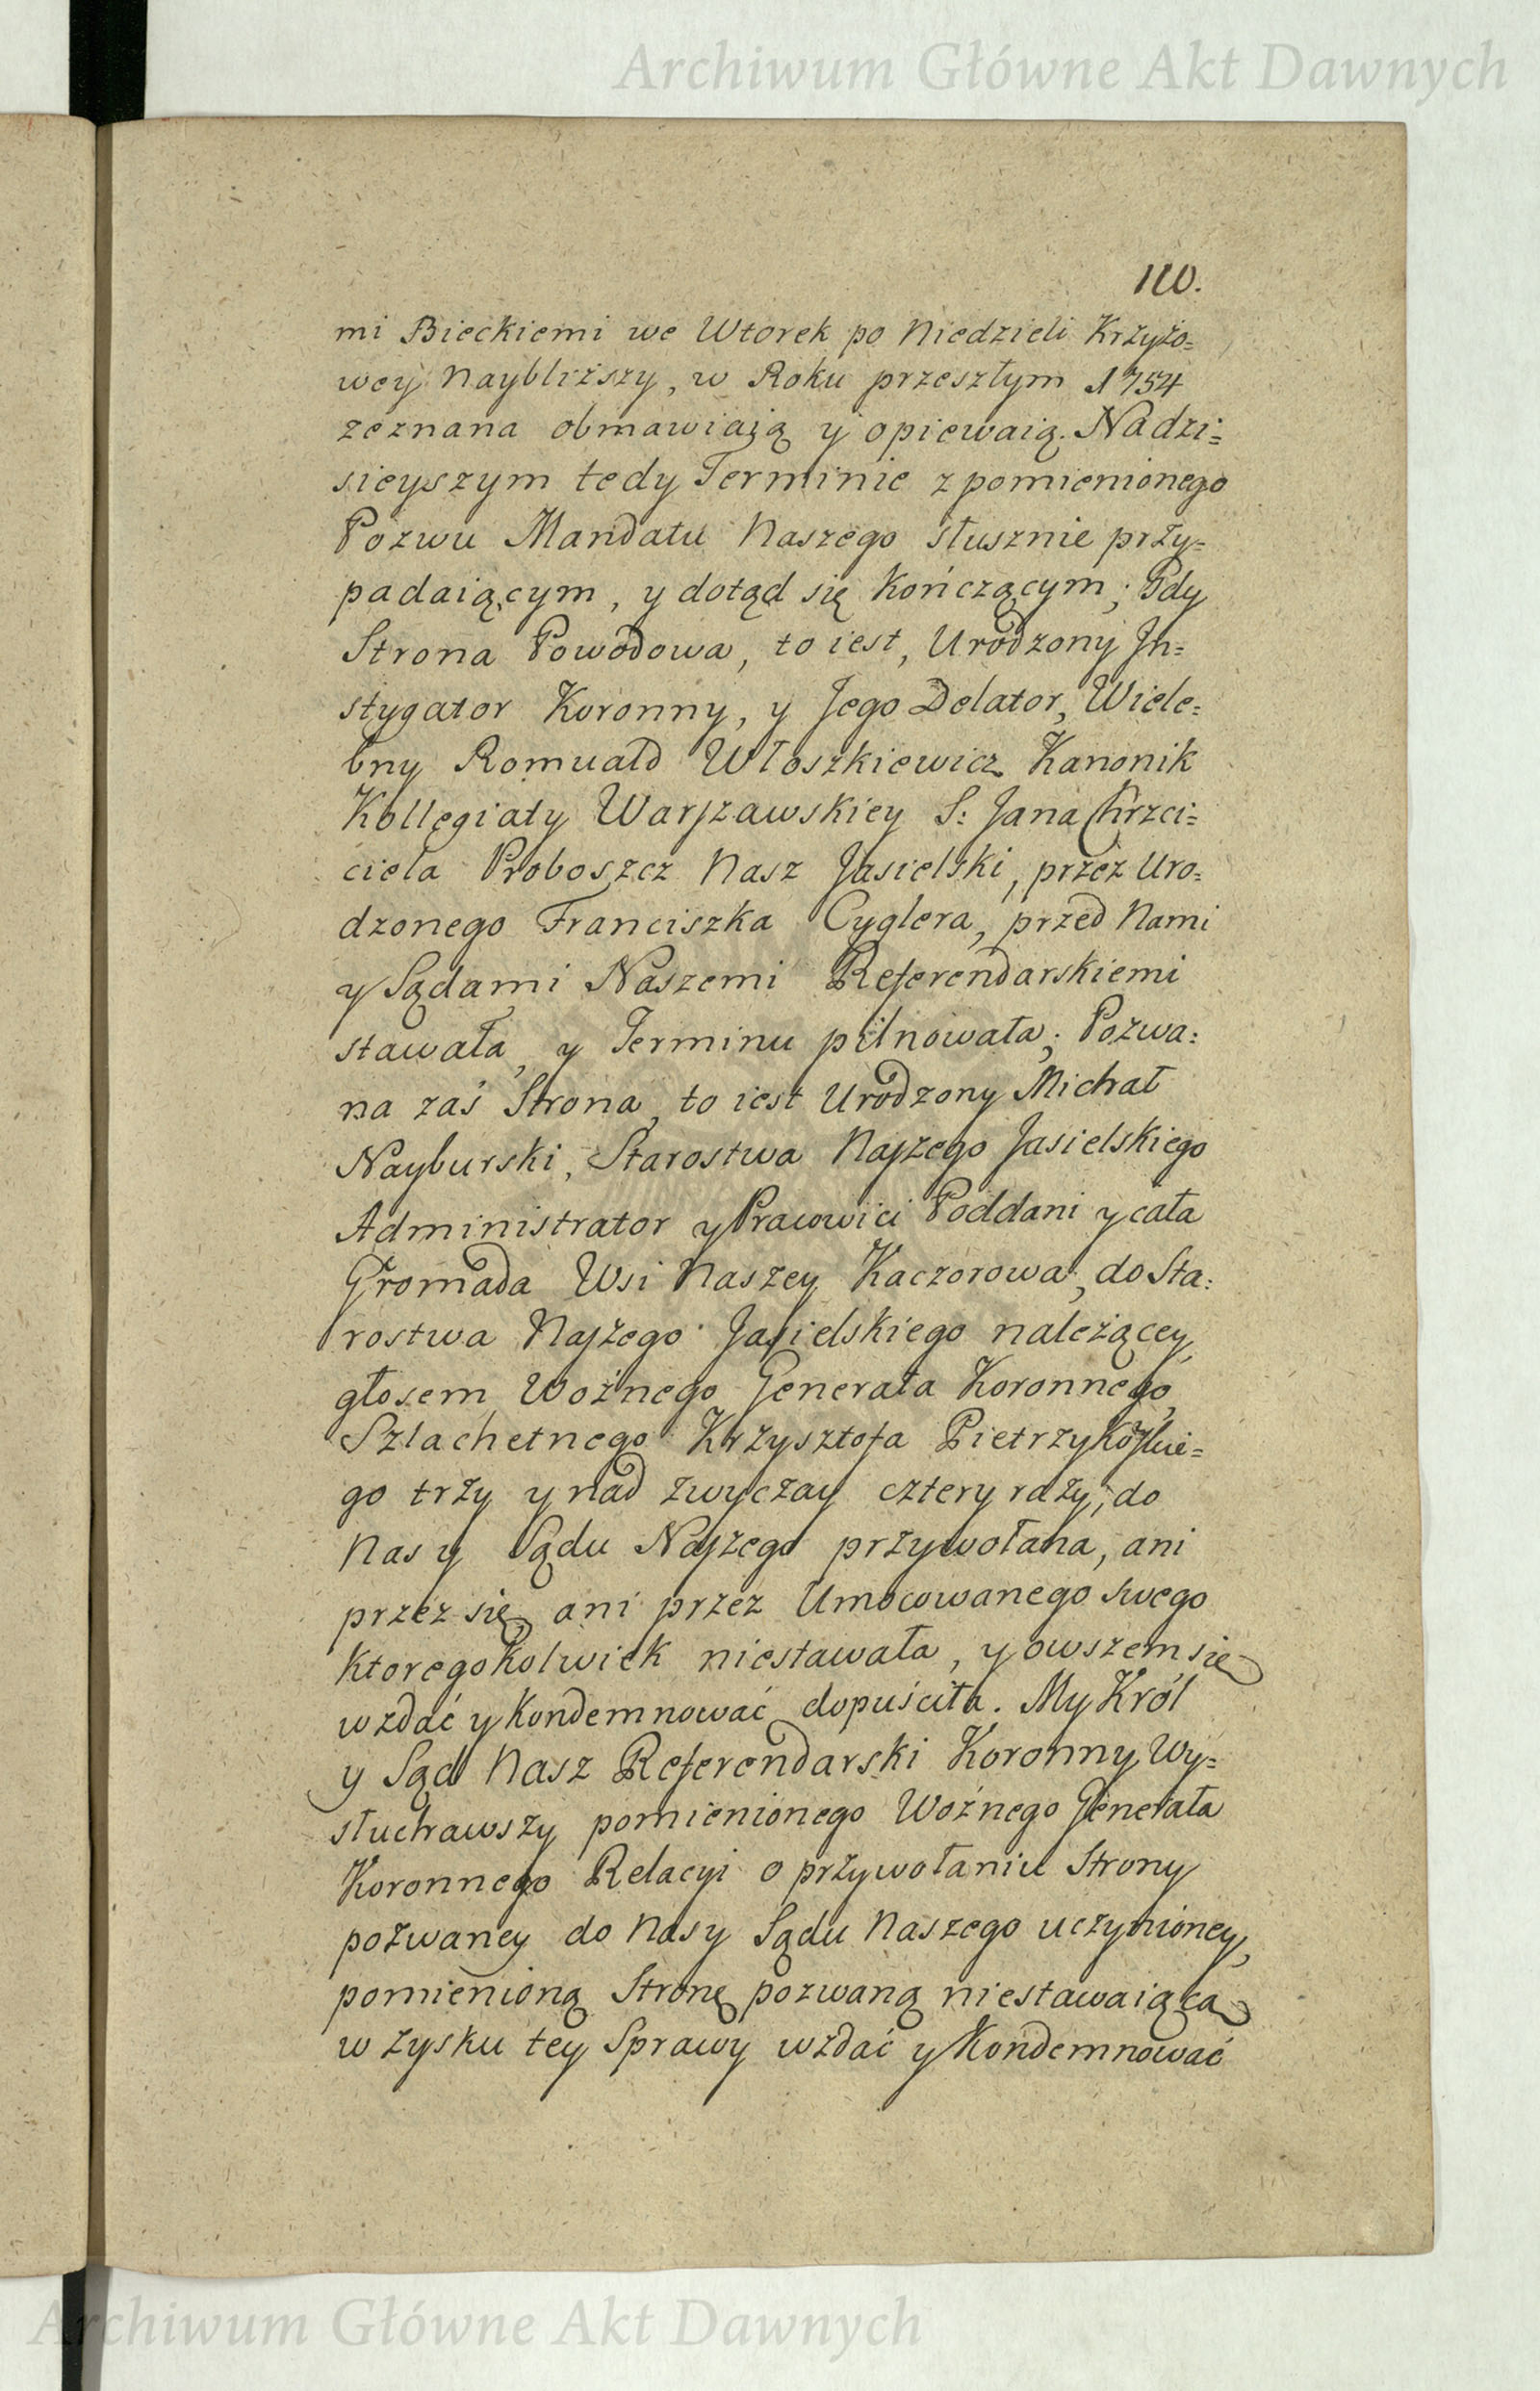 Archiwum Główne Akt Dawnych
110.
mi Bieckiemi we Wtorek po Niedzieli Krzyżo=
wey Naybliższy, w Roku przeszłym 1754
zeznana obmawiaią y opiewaią. Na dzi=
sieyszym tedy Terminie z pomienionego
Pozwu Mandatu Naszego słusznie przy=
padaiącym, y dotąd się kończącym; Gdy
Strona Powodowa, to iest, Urodzony In=
stygator Koronny, y Jego Delator, Wiele=
bny Romuald Włoszkiewicz Kanonik
Kollegiaty Warszawskiey S: Jana Chrzci=
ciela Proboszcz Nasz Jasielski, przez Uro=
dzonego Franciszka Cyglera, przed Nami
y Sądami Naszemi Referendarskiemi
stawała, y Terminu pilnowała; Pozwa=
na zaś Strona, to iest Urodzony Michał
Nayburski, Starostwa Naszego Jasielskiego
Administrator y Pracowici Poddani y cała
Gromada Wsi Naszey Kaczorowa, do Sta=
rostwa Naszego Jasielskiego należącey,
głosem Woźnego Generała Koronnego,
Szlachetnego Krzysztofa Pietrzykowskie=
go trzy y nad zwyczay cztery razy, do
Nas y Sądu Naszego przywołana, ani
przez się, ani przez Umocowanego swego
ktoregokolwiek niestawała, y owszem się
wzdać y kondemnować dopuściła. My Król
y Sąd Nasz Referendarski Koronny Wy=
słuchawszy pomienionego Woźnego Generała
Koronnego Relacyi o przywołaniu Strony
pozwaney do Nas y Sądu Naszego uczynioney,
pomienioną Stronę pozwaną niestawaiącą
w zysku tey Sprawy wzdać y Kondemnować
Archiwum Główne Akt Dawnych